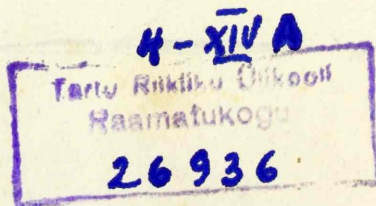 4-XIV A
Tartu Riikliku Ülikooli
Raamatukogu
26936